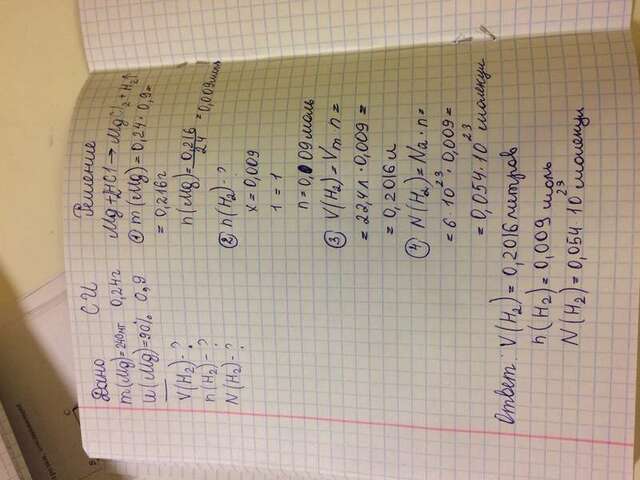 Дано
СИ
m(Mg)=240мг 0,24г
w(Mg)=90% 0,9
V(H2)-?
n(H2)-?
N(H2)-?
Решение
Mg+2HCl→MgCl2+H2↑
① m(Mg)=0,24·0,9=
=0,216г
n(Mg)=0,216/24=0,009моль
② n(H2)-?
x=0,009
1=1
n=0,009моль
③ V(H2)=Vm·n=
=22,4л·0,009=
=0,2016л
④ N(H2)=Na·n=
=6·10^23·0,009=
=0,054·10^23 молекул
Ответ: V(H2)=0,2016литров
n(H2)=0,009моль
N(H2)=0,054·10^23 молекул